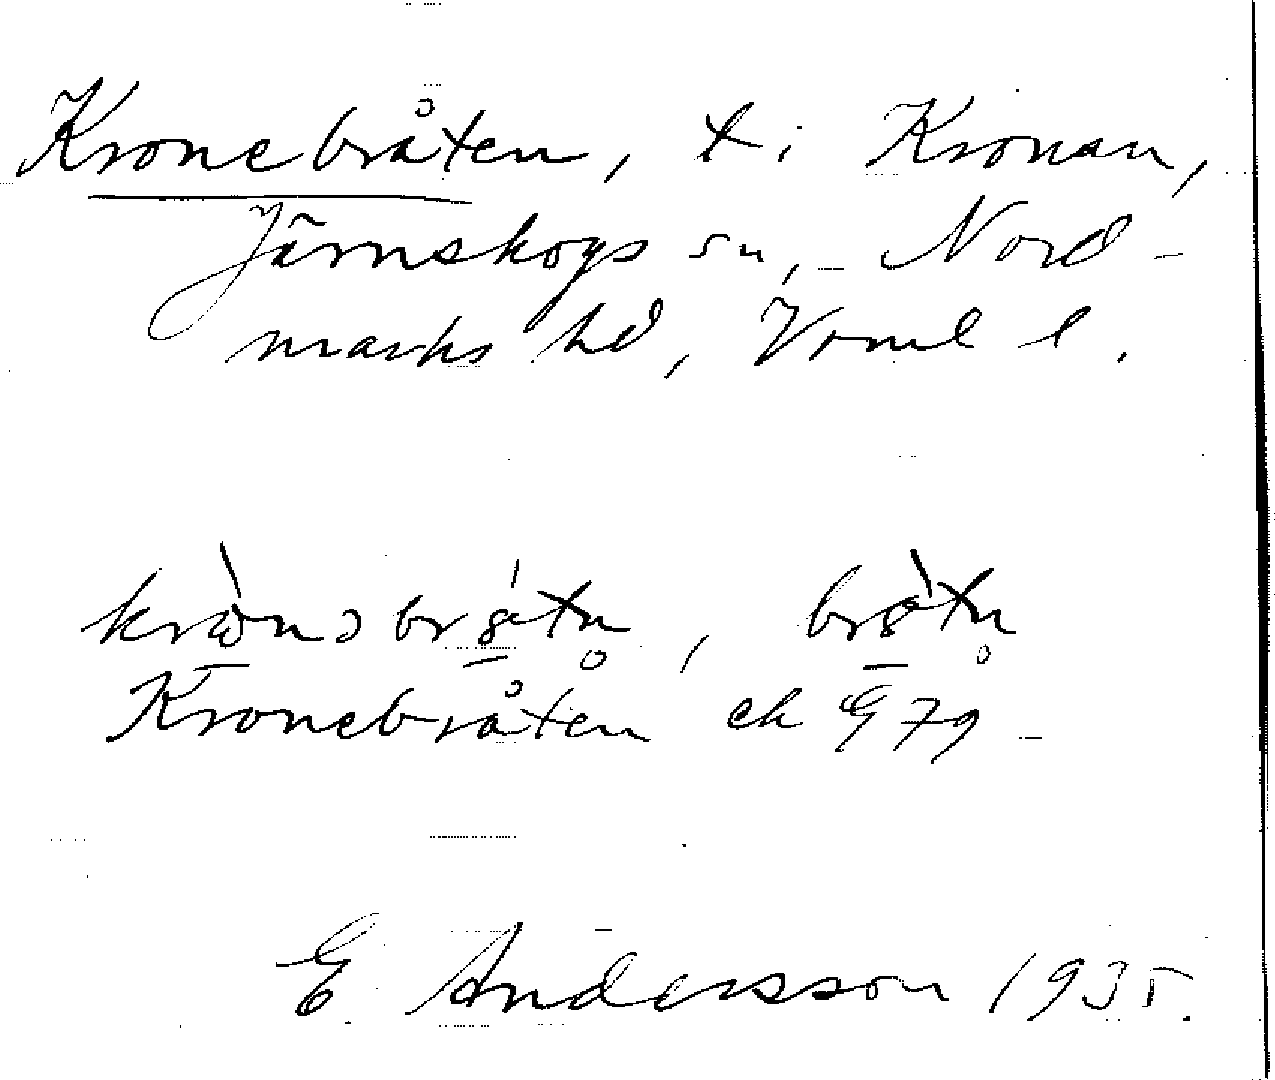 Kronebråten, t i Kronan,
Järnskogs sn, Nord-
marks hd, Vrml l.
Kronebråten ek G 79
E. Andersson 1935.